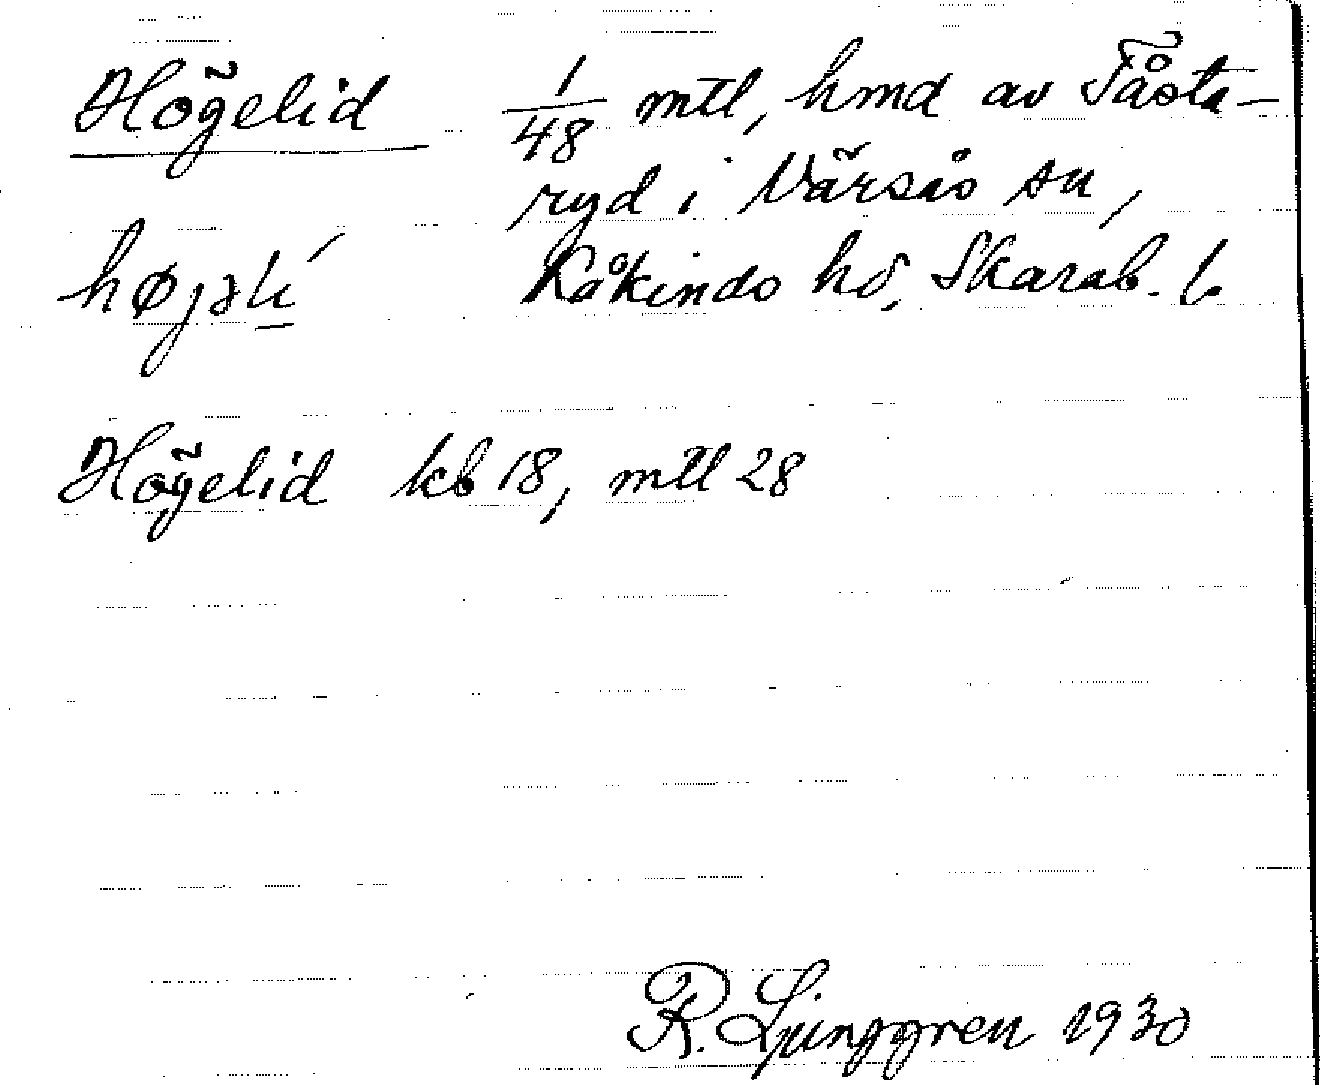 Högelid 1/48 mtl, hmd av Fåsta-
ryd i Värsås sn,
Kåkinds hd, Skarab. l.
Högelid kb 18, mtl 28
R. Ljunggren 1930